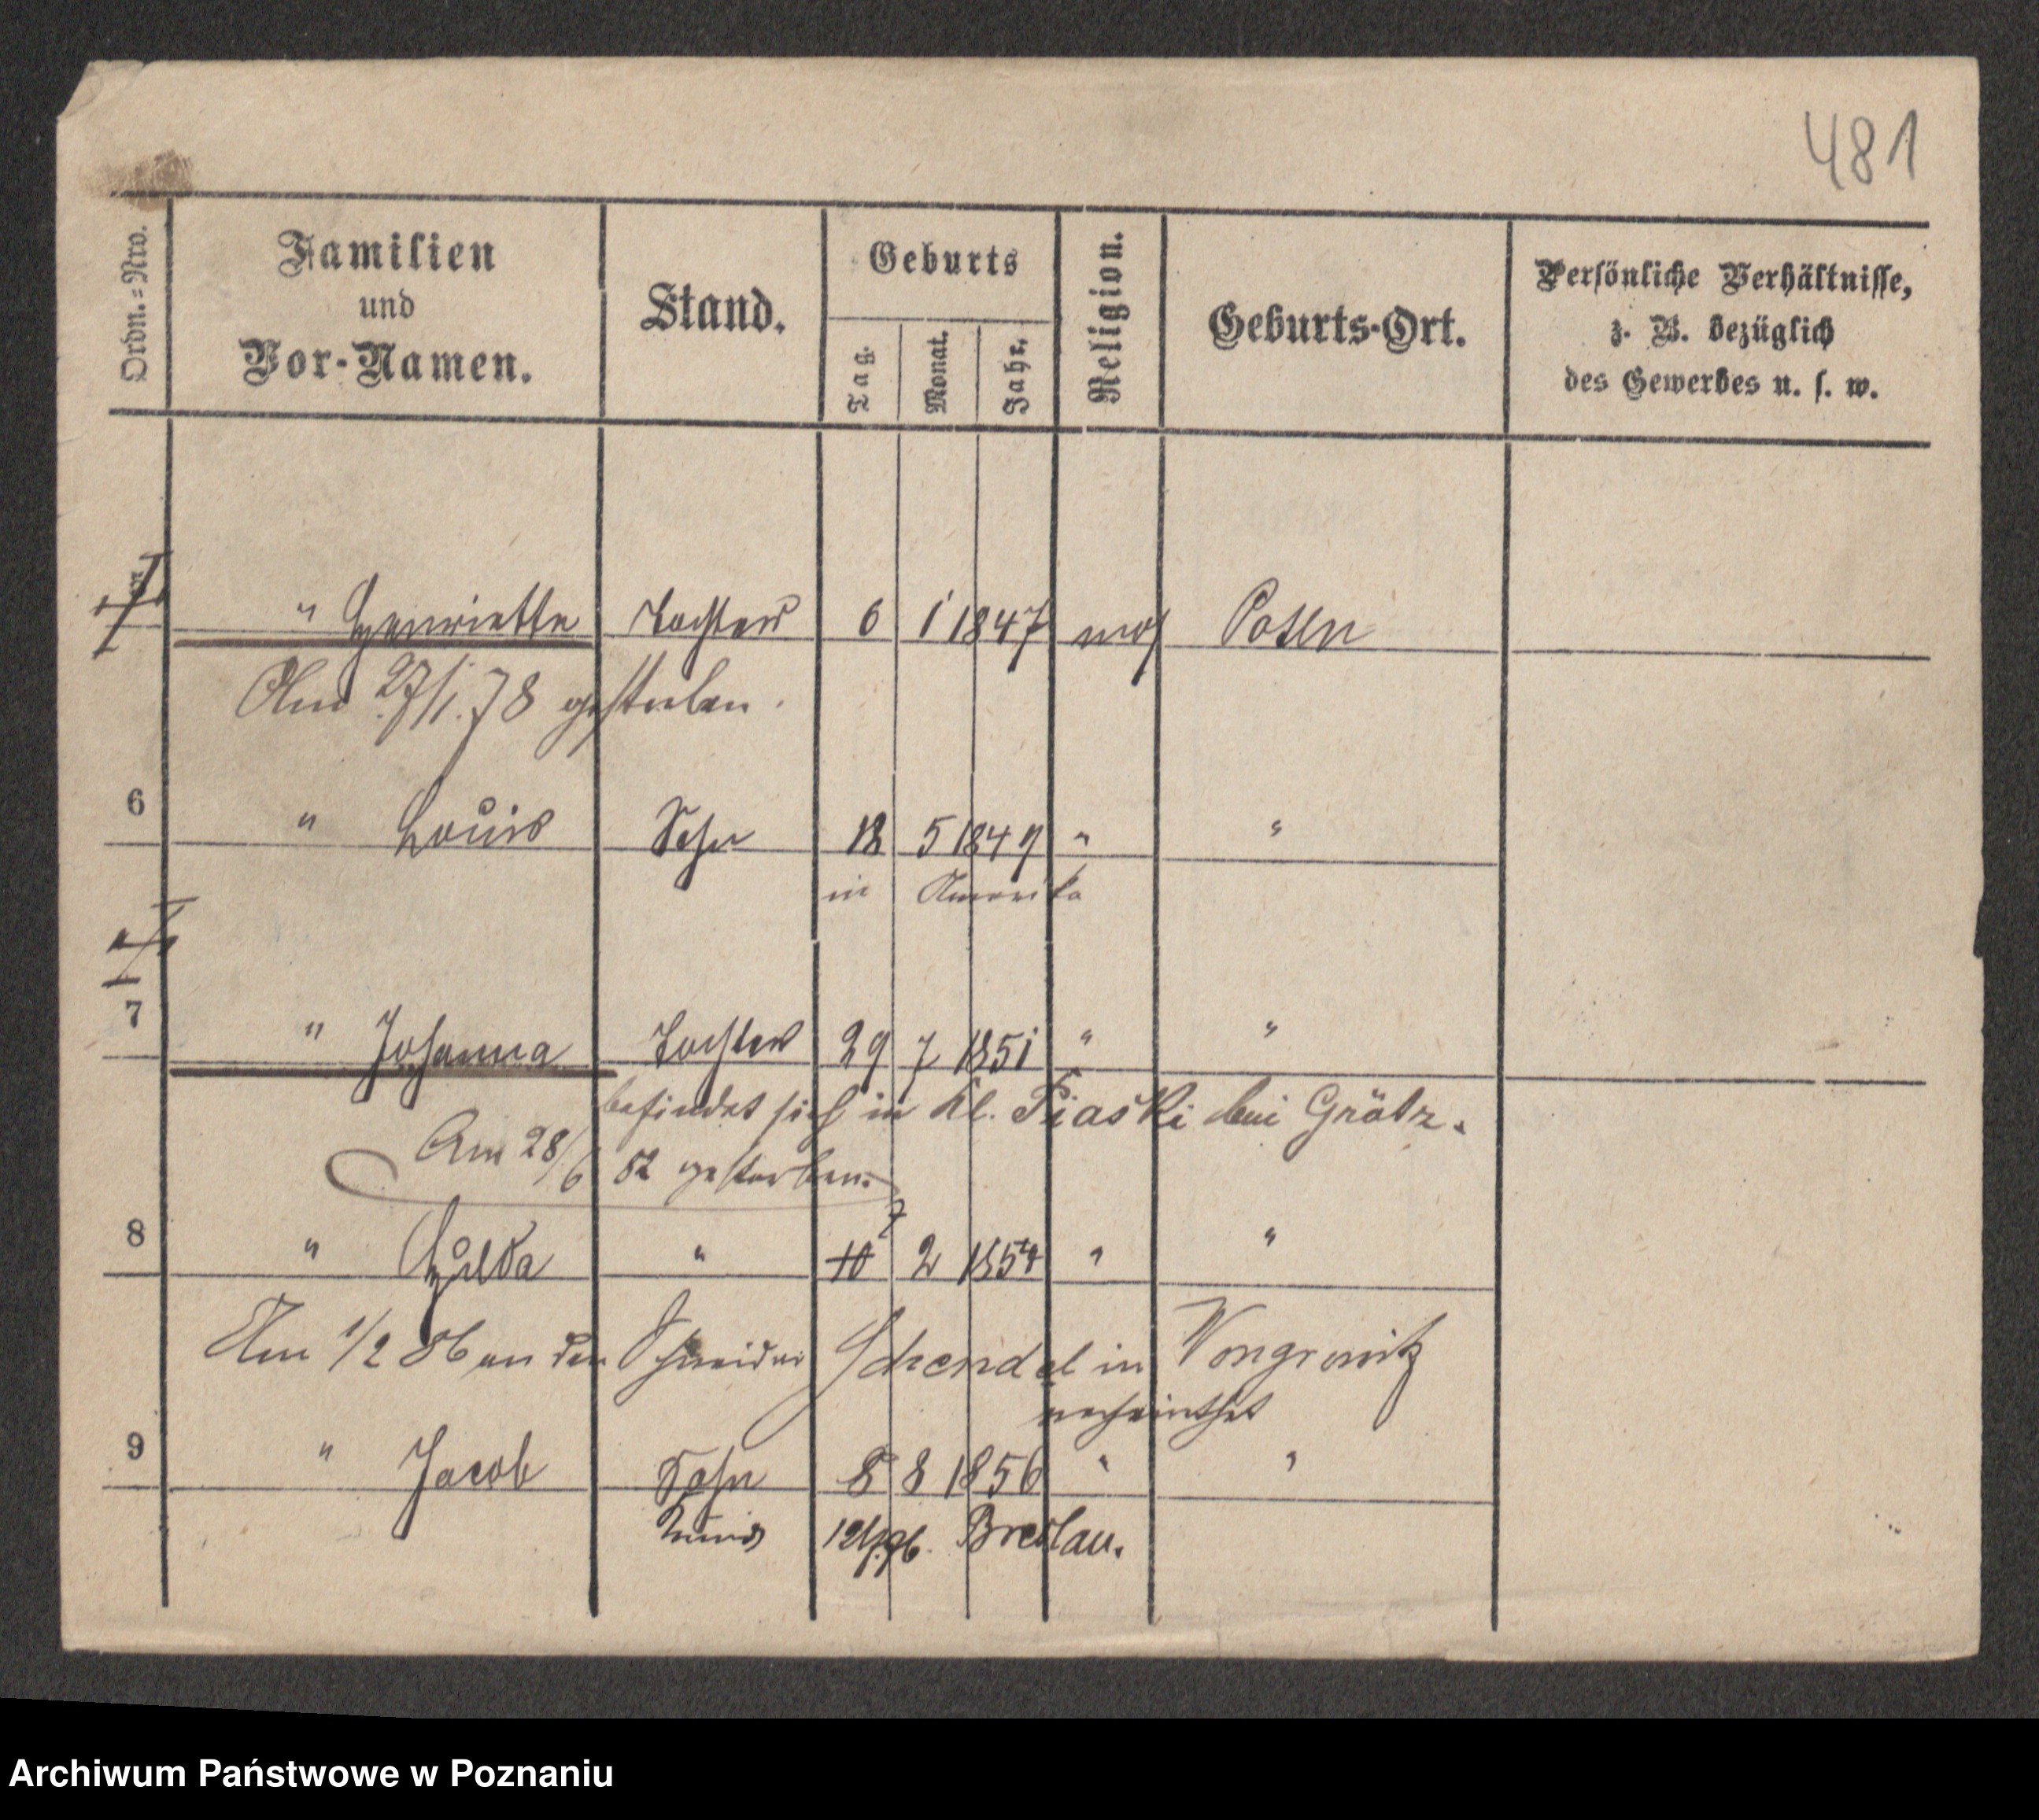 481
Ordn.=Nro.
Familien
und
Vor-Namen.
Stand.
Geburts
Tag.
Monat.
Jahr.
Religion.
Geburts-Ort.
Persönliche Verhältnisse,
z. B. bezüglich
des Gewerbes u. s. w.
" Henriette Tochter 6 1 1847 mos Posen
Am 27/1.78 gestorben.
6 " Louis Sohn 18 5 1849 " "
in Amerika
7 " Johanna Tochter 29 7 1851 " "
befindet sich in Kl. Piaski bei Grätz.
Am 28/6 82 gestorben.
7
8 " Hulda " 10 2 1854 " "
Am 1/2 86 an den Schneider Schendel in Wongrowitz
verheirathet
9 " Jacob Sohn 8 8 1856 " "
Breslau.
Archiwum Państwowe w Poznaniu